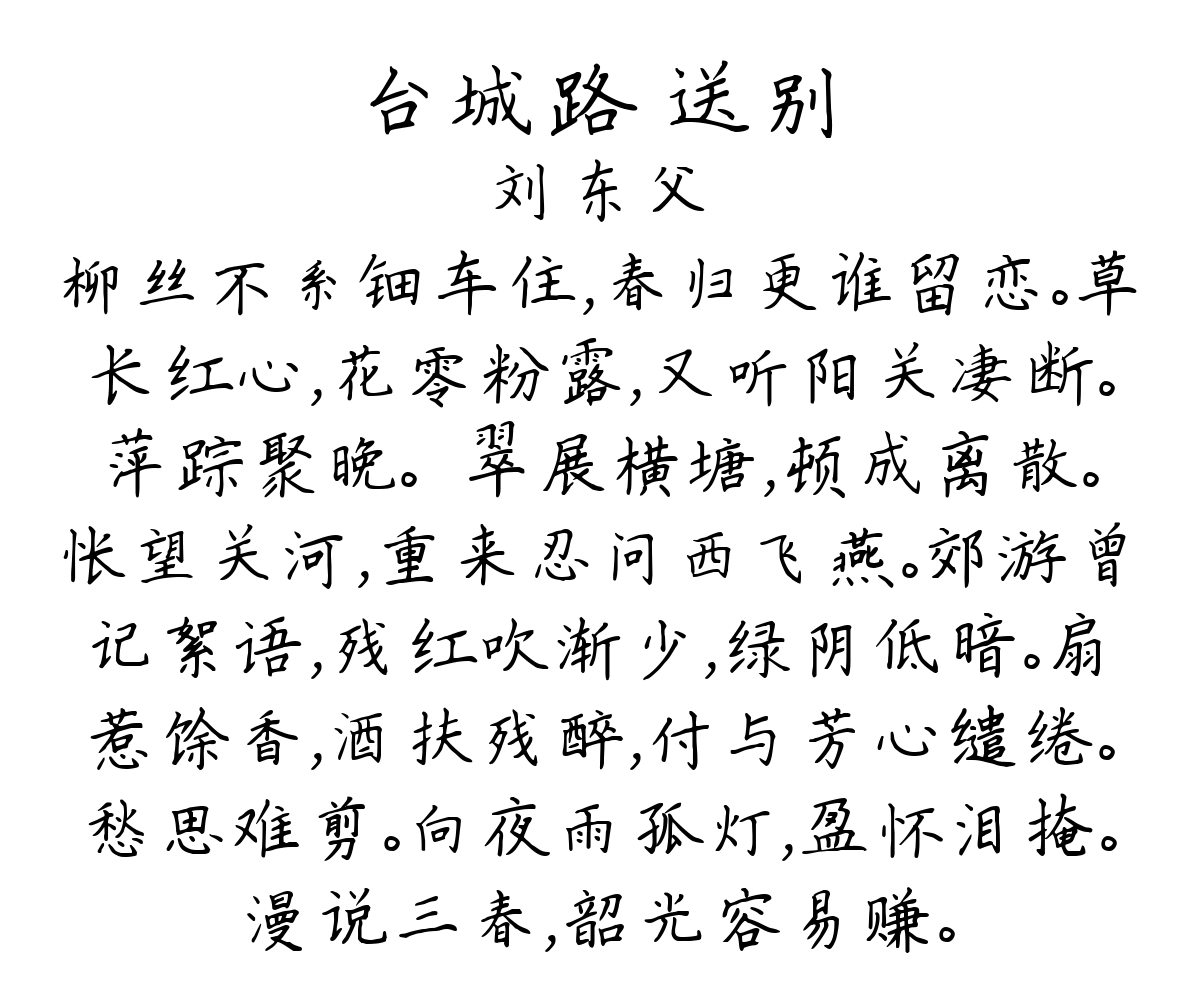 台城路 送别
刘东父
柳丝不系钿车住,春归更谁留恋。草
长红心,花零粉露,又听阳关凄断。
萍踪聚晚。翠展横塘,顿成离散。
怅望关河,重来忍问西飞燕。郊游曾
记絮语,残红吹渐少,绿阴低暗。扇
惹馀香,酒扶残醉,付与芳心缱绻。
愁思难剪。向夜雨孤灯,盈怀泪掩。
漫说三春,韶光容易赚。